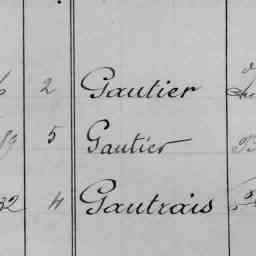 2 Gautier
89 5 Gautier
32 4 Gautrais